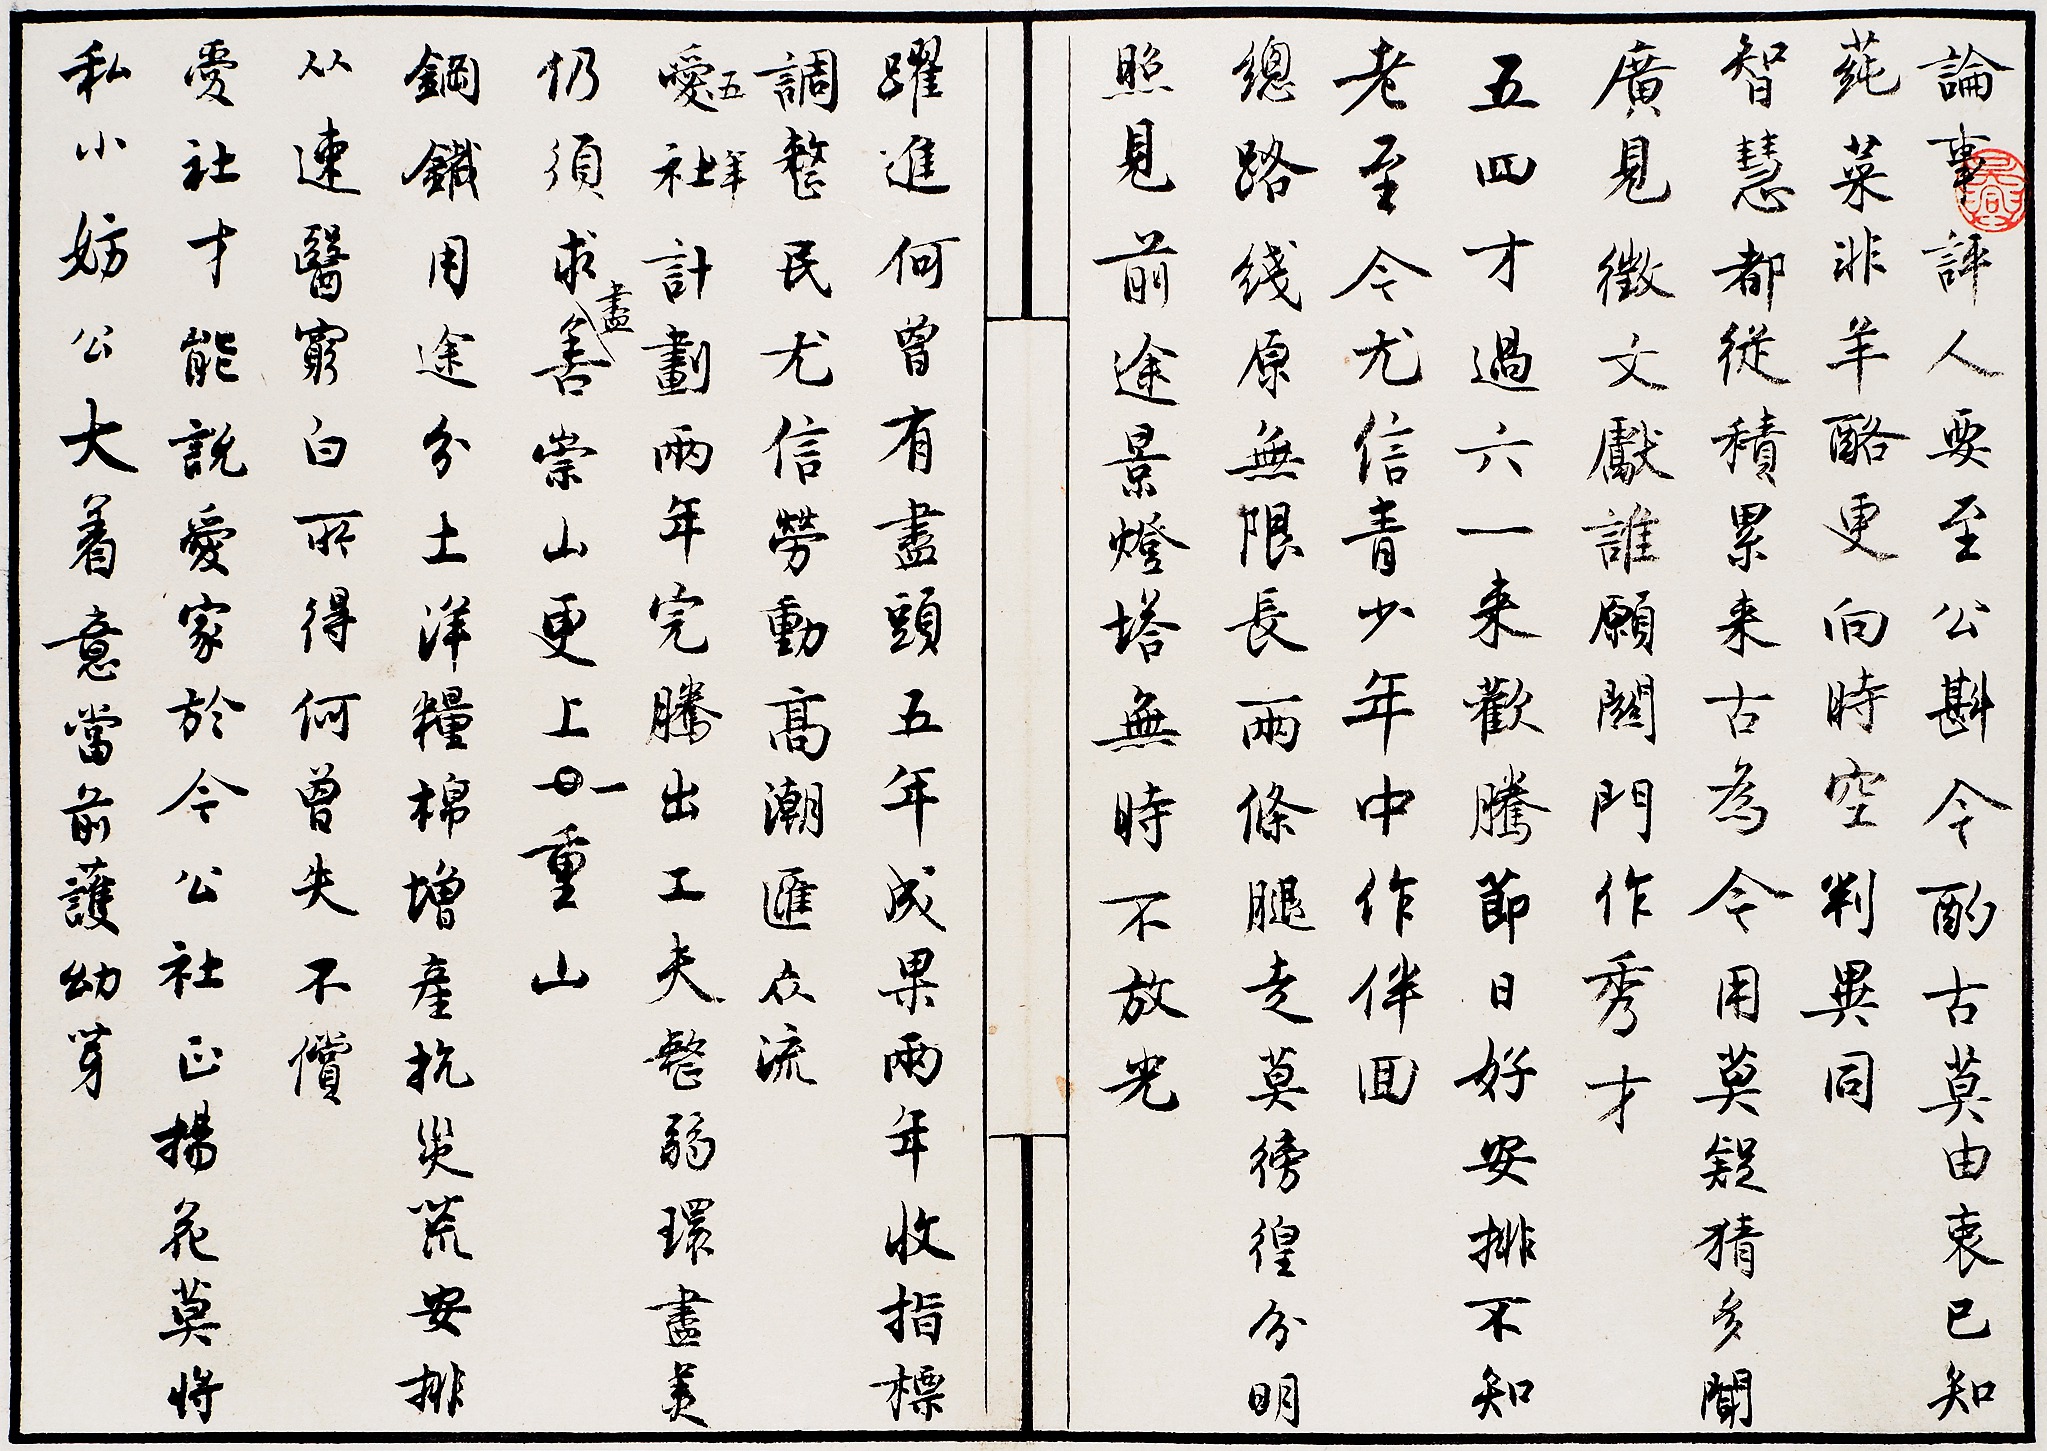 論事評人要至公斟今酌古莫由衷已知
蒓菜非羊酪更向時空判異同
智慧都從積累来古為今用莫疑猜多聞
廣見徵文獻誰願關門作秀才
五四才過六一来歡騰節日好安排不知
老至今尤信青少年中作伴回
總路綫原無限長兩條腿走莫徬徨分明
照見前途景燈塔無時不放光
躍進何曾有盡頭五年成果兩年收指標
調整民尤信勞動高潮匯众流
愛社計劃兩年完騰出工夫整弱環盡美
五年
仍須求盡善崇山更上一重山
鋼鐵用途分土洋糧棉增產抗災荒安排
从速醫窮白所得何曾失不償
愛社才能説愛家於今公社正揚花莫將
私小妨公大着意當前護幼芽